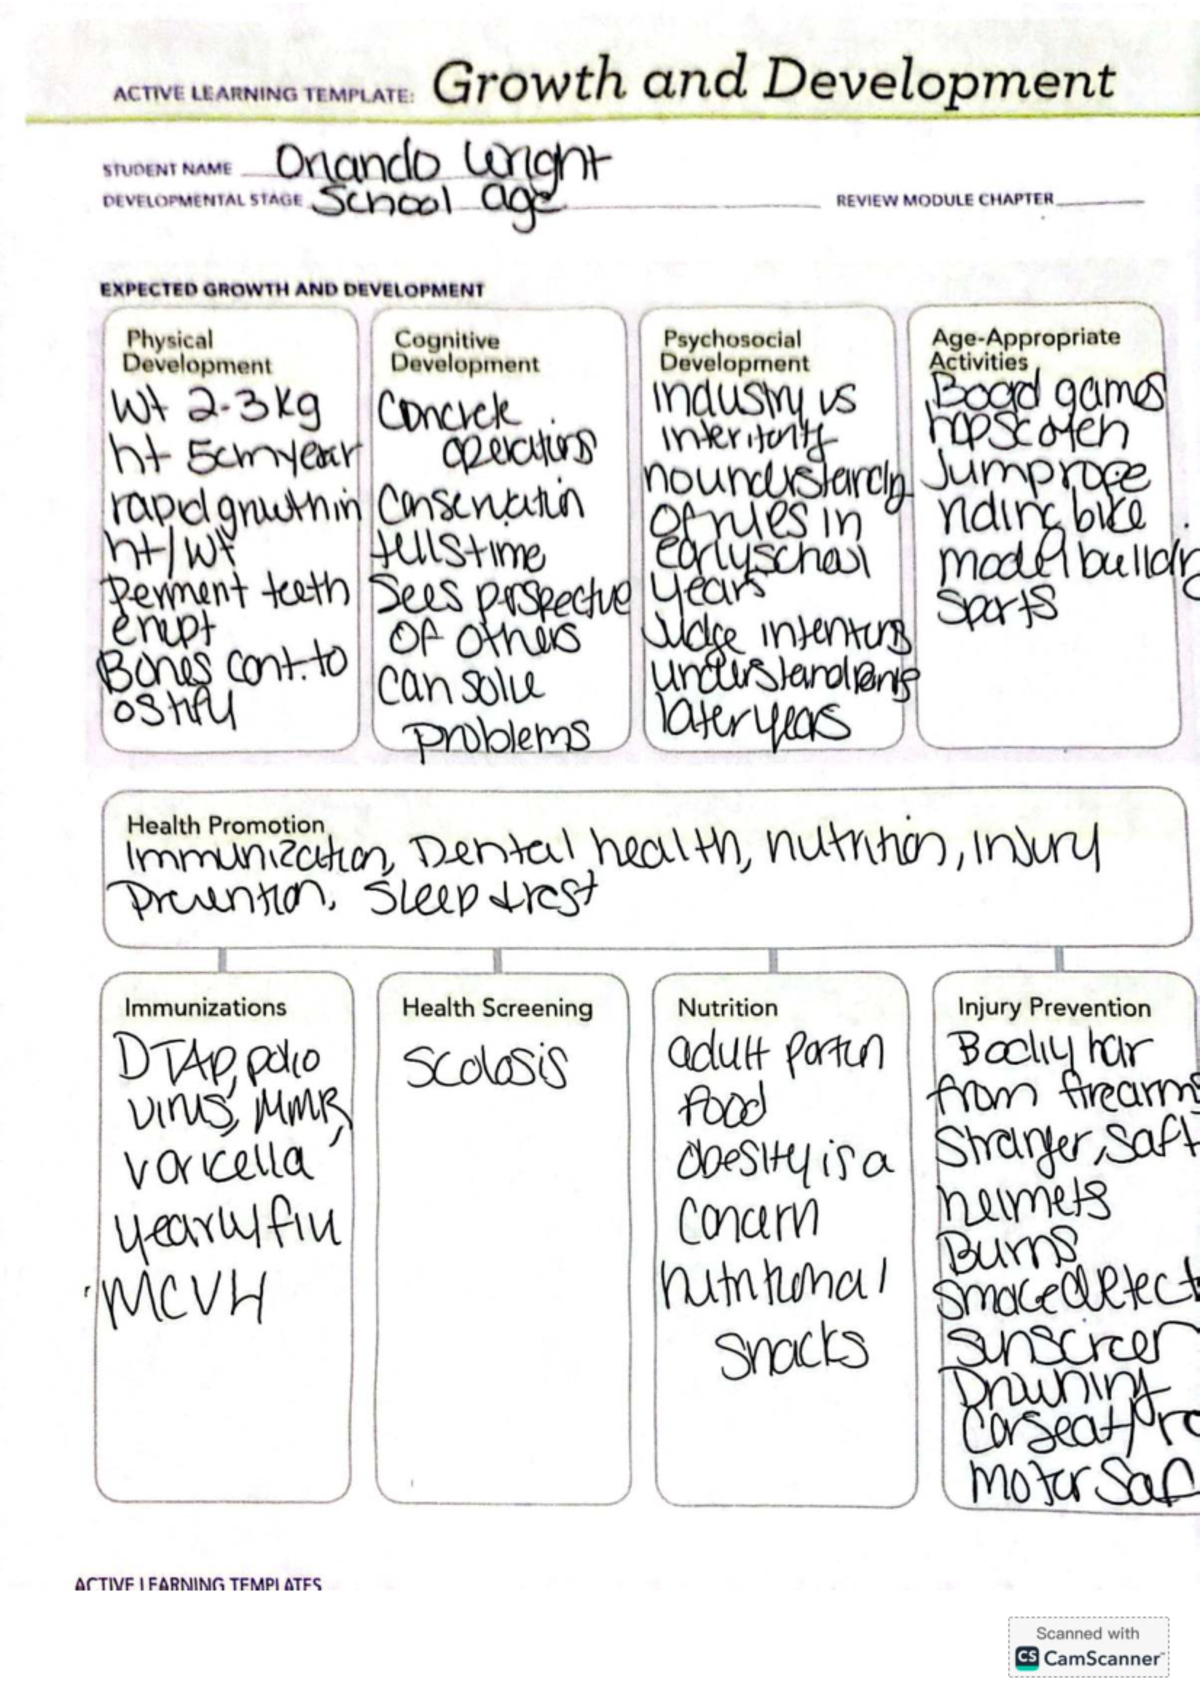 ACTIVE LEARNING TEMPLATE: Growth and Development
STUDENT NAME Orlando Wright
DEVELOPMENTAL STAGE School age REVIEW MODULE CHAPTER
EXPECTED GROWTH AND DEVELOPMENT
Physical Development
Wt 2-3 kg
ht 5cm year
rapid growth in
ht/wt
Perment teeth
erupt
Bones cont. to
ossify
Cognitive Development
Concrete
operations
Conservation
tells time
Sees perspective
of others
can solve
problems
Psychosocial Development
Industry vs
no understanding
of rules in
early school
years
Judge intentions
understand
later years
Age-Appropriate Activities
Board games
hopscotch
Jumprope
riding bike
model building
Sports
Health Promotion
Immunization, Dental health, nutrition, Injury
Prevention, Sleep & rest
Immunizations
DTAP, polio
virus, MMR,
varicella
yearly flu
MCV4
Health Screening
Scolosis
Nutrition
adult portion
food
obesity is a
concern
nutritional
Snacks
Injury Prevention
Bodily har
from firearms
Stranger, Saft
helmets
Burns
smoke detect
sunscreen
Drowning
Carseat/
motor Saf
ACTIVE LEARNING TEMPLATES
Scanned with
CS CamScanner